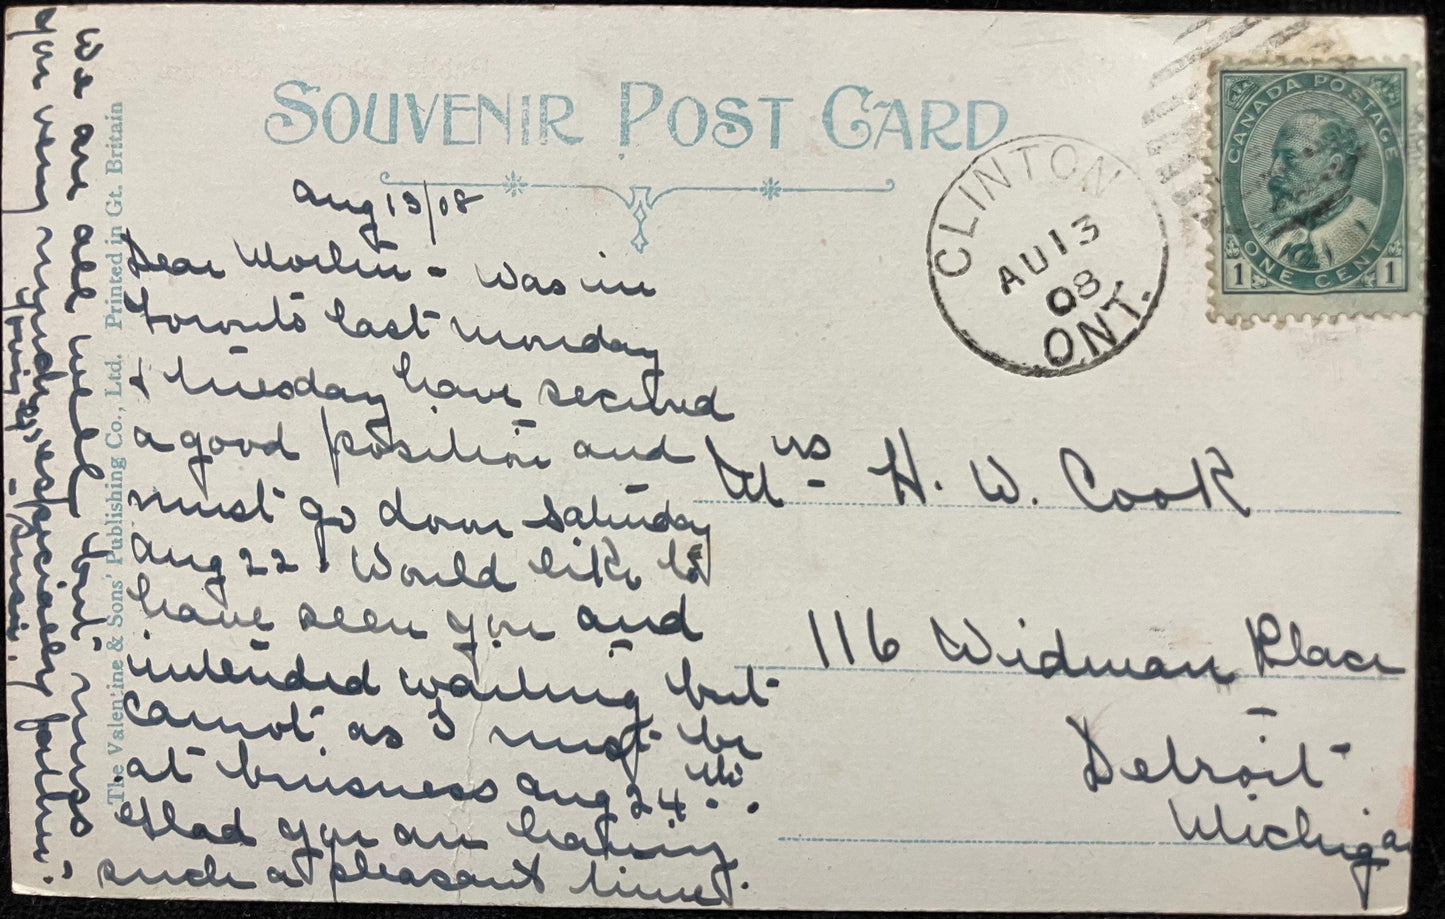 SOUVENIR POST CARD
CANADA POSTAGE
1 ONE CENT 1
CLINTON
AU 13
08
ONT.
Aug 13/08
Dear Mother - was in
Toronto last monday
& tuesday have secured
a good position and
must go down Saturday
Aug 22. Would like to
have seen you and
intended waiting but
cannot as I must be
at buisness Aug 24th.
Glad you are having
such a pleasant time.
We are all well but miss
you very much, especially father.
Mrs H. W. Cook
116 Widman Place
Detroit
Michigan
The Valentine & Sons' Publishing Co., Ltd. Printed in Gt. Britain